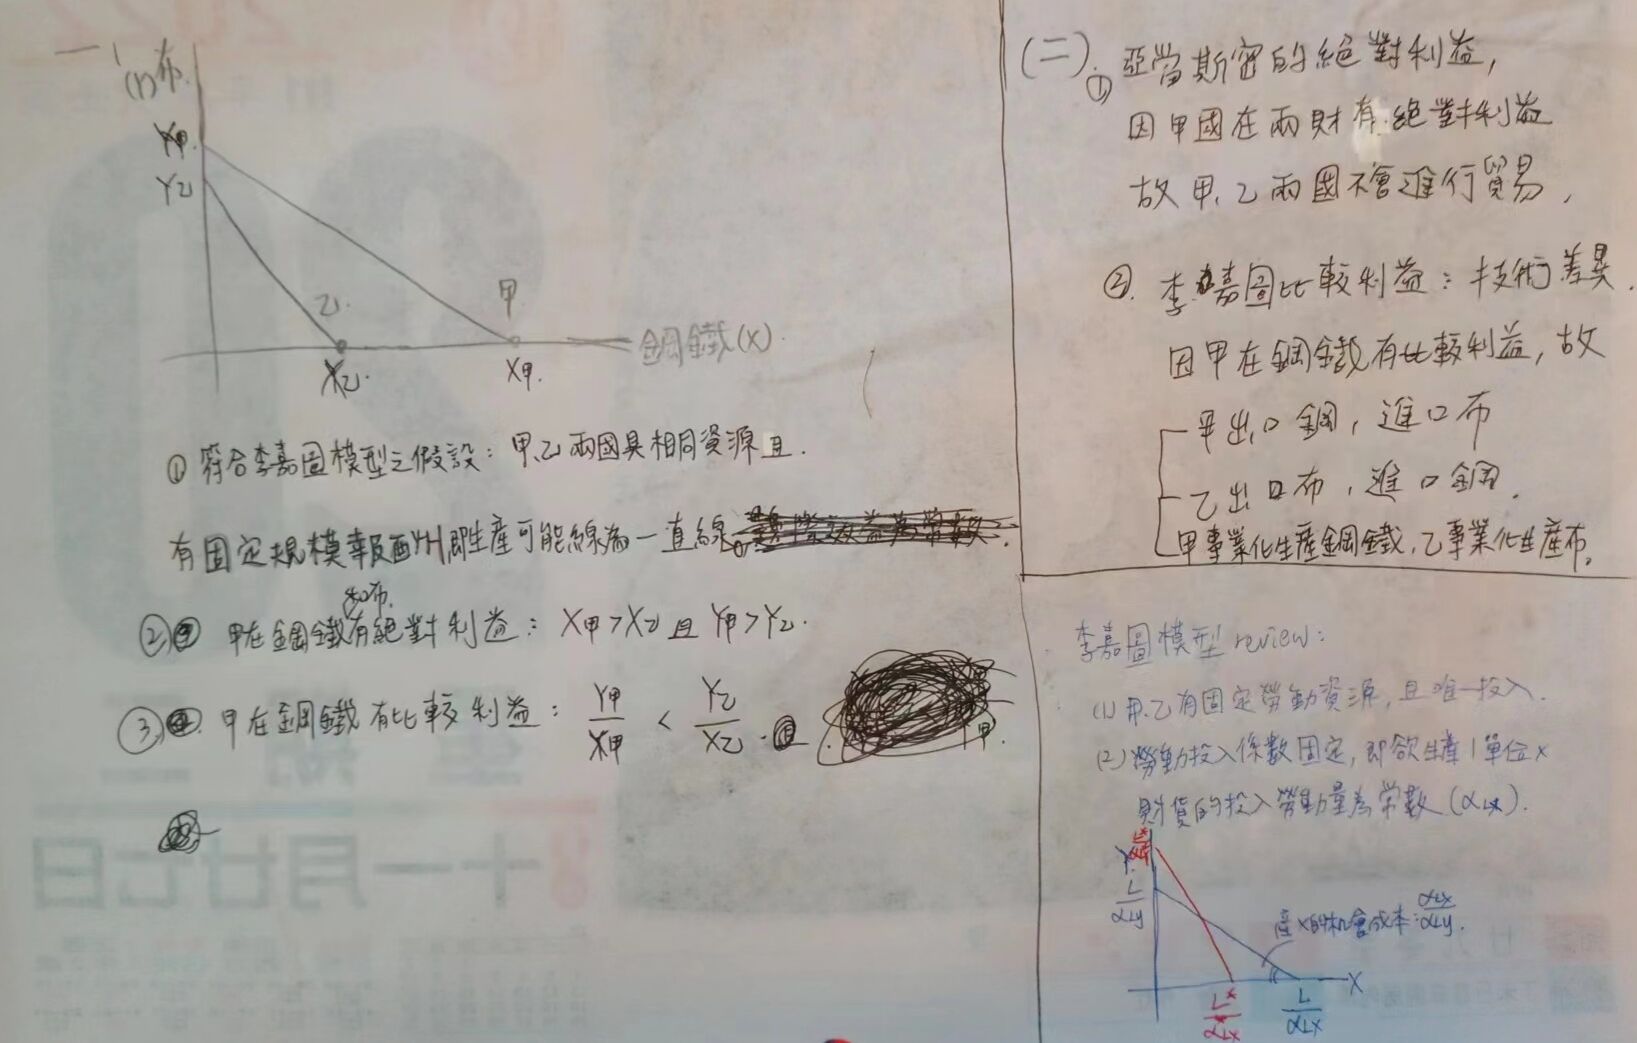 一、
(Y)布
Y甲
Y乙
乙
甲
鋼鐵(X)
X乙
X甲
① 符合李嘉圖模型之假設：甲、乙兩國具相同資源且
有固定規模報酬即生產可能線為一直線。
② 甲在鋼鐵和布有絕對利益：X甲>X乙 且 Y甲>Y乙.
③ 甲在鋼鐵有比較利益：Y甲/X甲 < Y乙/X乙.
(二).① 亞當斯密的絕對利益,
因甲國在兩財有絕對利益
故甲、乙兩國不會進行貿易,
②. 李嘉圖比較利益：技術差異.
因甲在鋼鐵有比較利益, 故
甲出口鋼, 進口布
乙出口布, 進口鋼.
甲專業化生產鋼鐵, 乙專業化生產布。
李嘉圖模型 review:
(1) 甲.乙有固定勞動資源, 且唯一投入.
(2) 勞動投入係數固定, 即欲生產1單位x
財貨的投入勞動量為常數(αLx).
Y
L/αLy
產X的机會成本: αLx/αLy.
X
L*/α*Lx
L/αLx
十一月廿七日